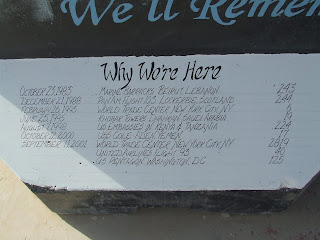 We'll Remem
Why We're Here
OCTOBER 23, 1983 MARINE BARRACKS, BEIRUT, LEBANON 243
DECEMBER 21, 1988 PAN AM FLIGHT 103, LOCKERBIE, SCOTLAND 244
FEBRUARY 26, 1993 WORLD TRADE CENTER, NEW YORK CITY, NY
JUNE 25, 1996 KHOBAR TOWERS, DHAHRAN, SAUDI ARABIA 19
AUGUST 7, 1998 US EMBASSIES IN KENYA & TANZANIA 224
OCTOBER 12, 2000 USS COLE, ADEN, YEMEN 17
SEPTEMBER 11, 2001 WORLD TRADE CENTER, NEW YORK CITY, NY 2819
UNITED AIRLINES FLIGHT 93 40
US PENTAGON, WASHINGTON, D.C. 125